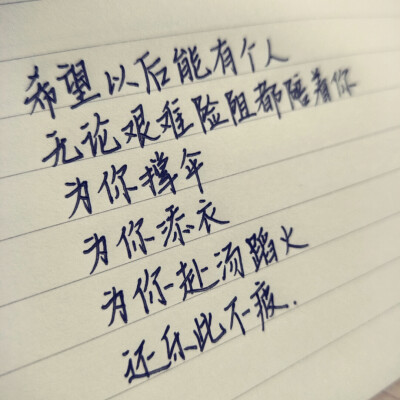 希望以后能有个人
无论艰难险阻都陪着你
为你撑伞
为你添衣
为你赴汤蹈火
还乐此不疲.